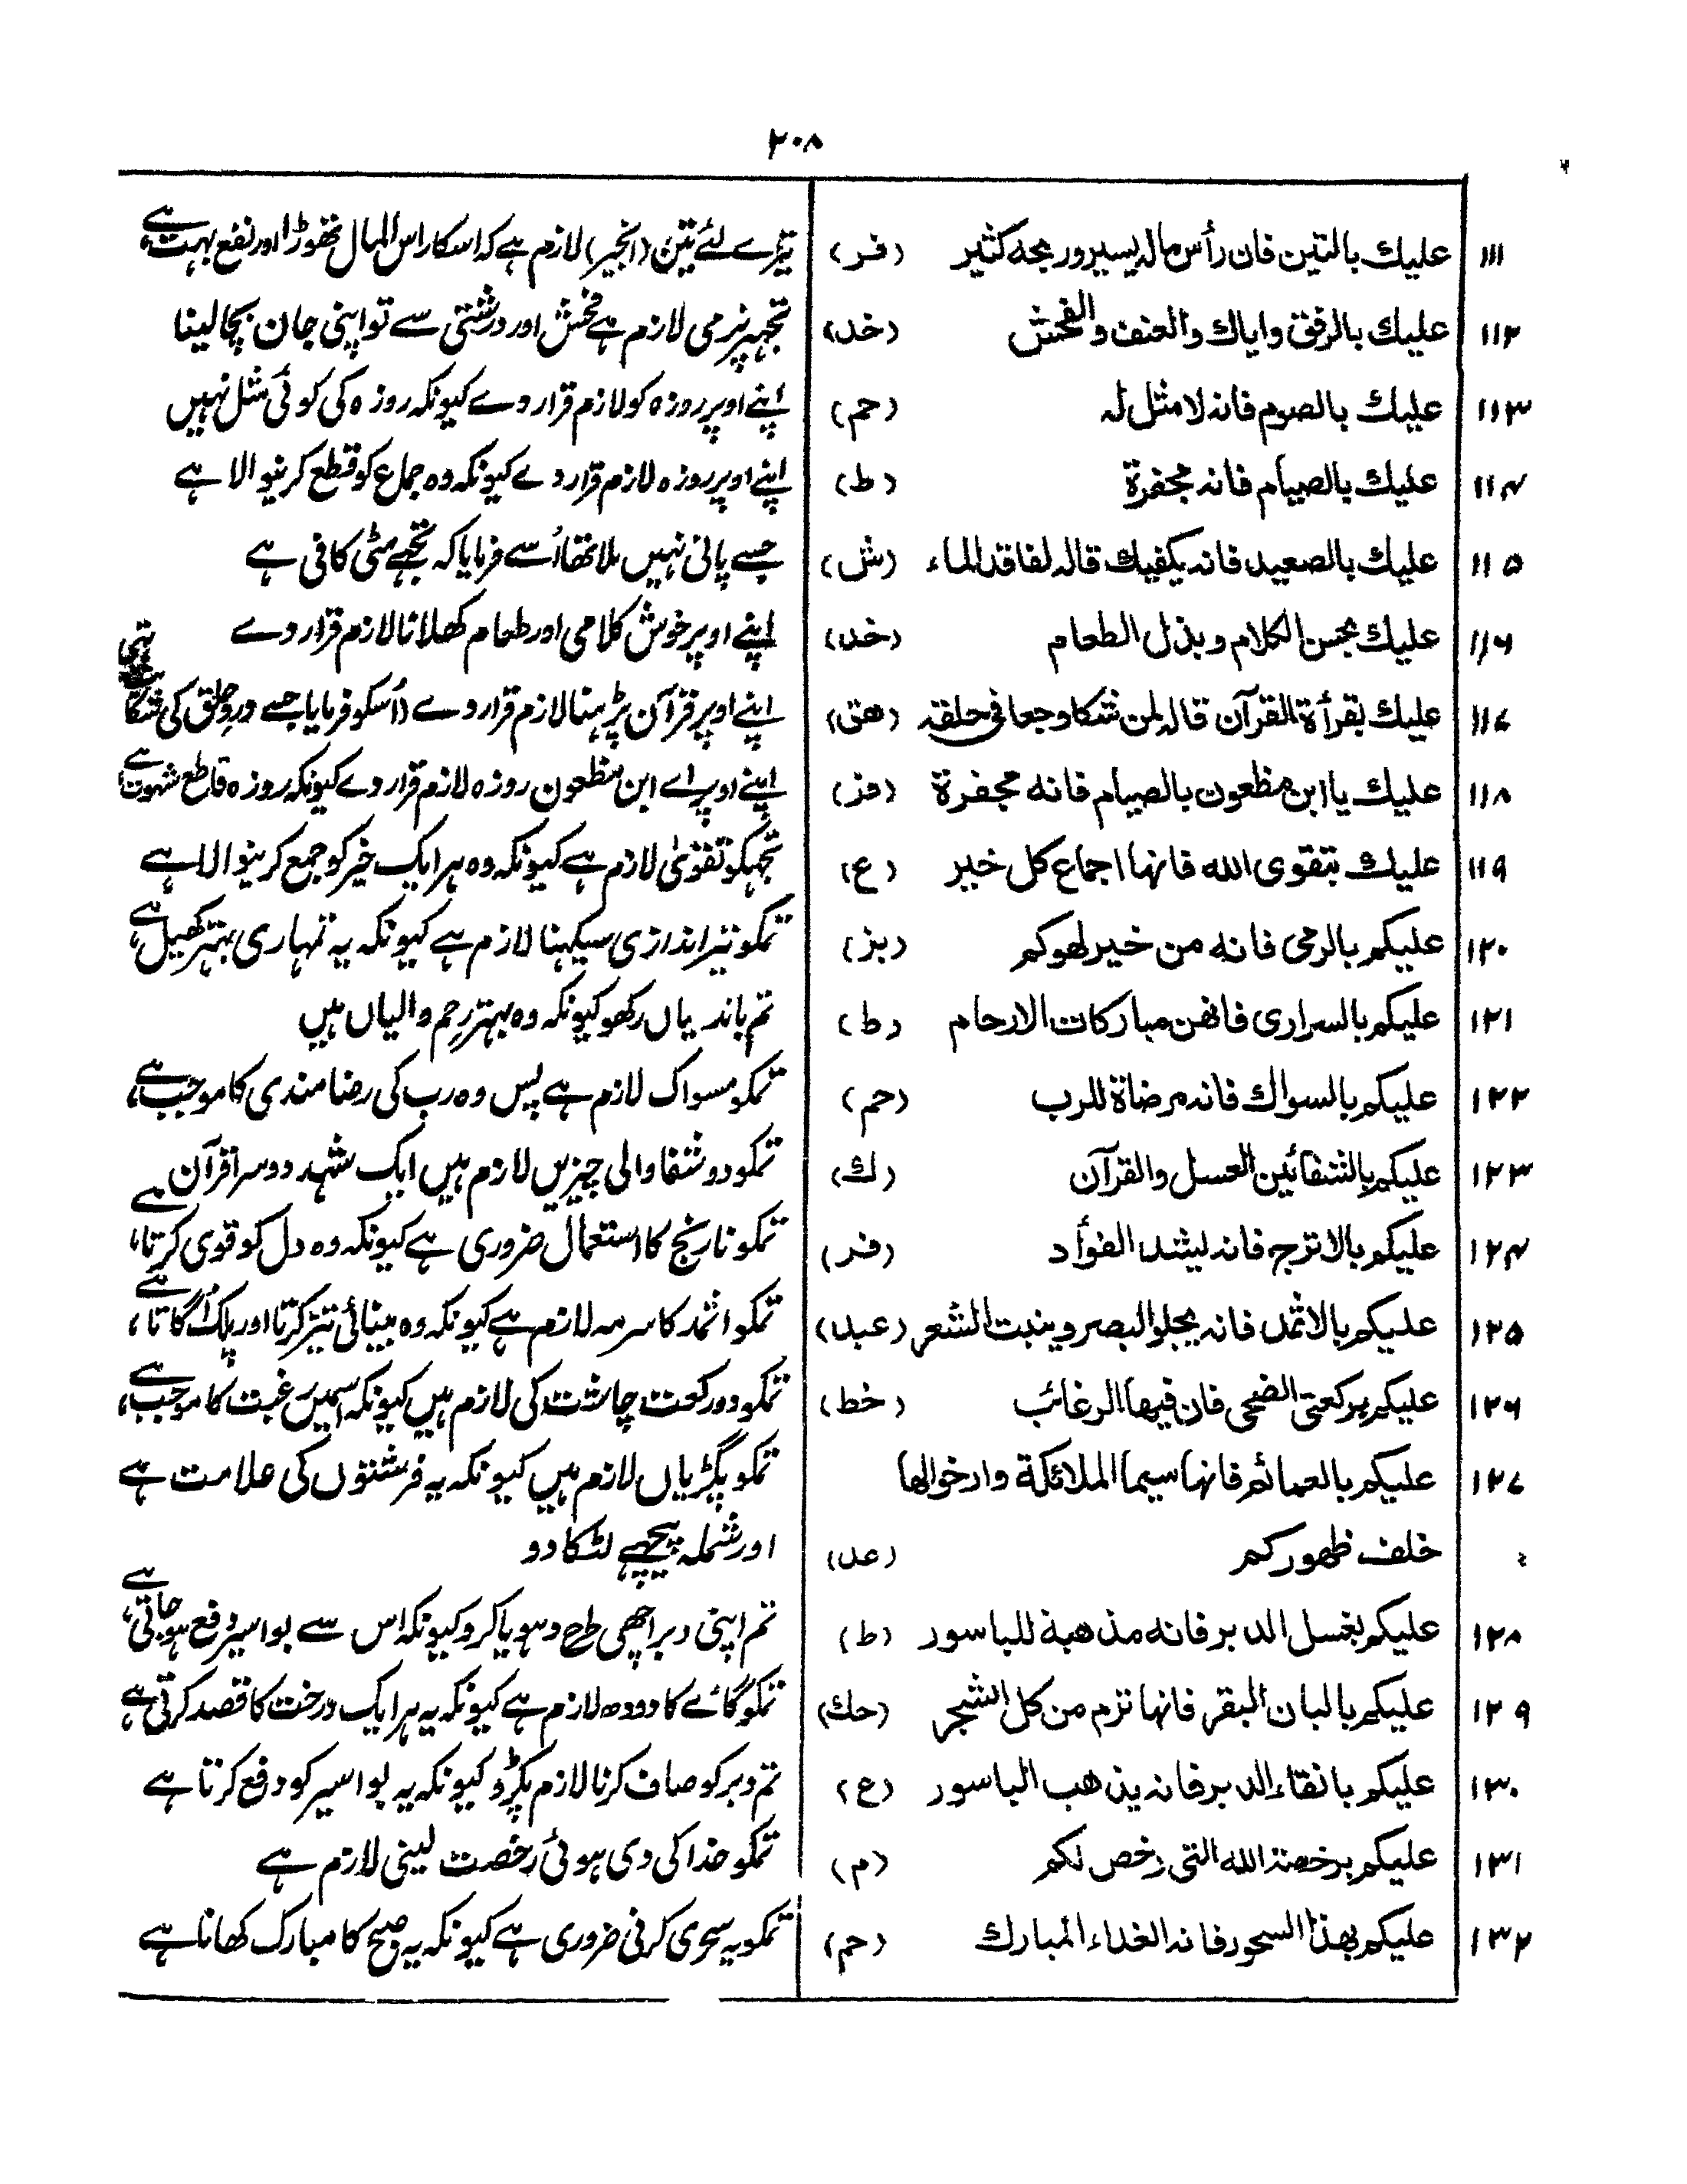 ۲۰۸
۱۱۱ علیك بالتین فان رأس ماله یسیر وربحه کثیر (فر) تیرے لئے تین (انجیر) لازم ہے کہ اسکا راس المال تھوڑا اور نفع بہت ہے،
۱۱۲ علیك بالرفق وایاك والعنف والفحش (خد) تجہپر نرمی لازم ہے فحش اور درشتی سے تو اپنی جان بچا لینا
۱۱۳ علیك بالصوم فانه لا مثل له (حم) اپنے اوپر روزہ کو لازم قرار دے کیونکہ روزہ کی کوئی مثل نہیں
۱۱۴ علیك بالصیام فانه مجفرة (ط) اپنے اوپر روزہ لازم قرار دے کیونکہ وہ جماع کو قطع کرنیوالا ہے
۱۱۵ علیك بالصعید فانه یکفیك قاله لفاقد الماء (ش) جسے پانی نہیں ملا تھا اُسے فرمایا کہ تجھے مٹی کافی ہے
۱۱۶ علیك بحسن الکلام وبذل الطعام (خد) اپنے اوپر خوش کلامی اور طعام کھلانا لازم قرار دے
۱۱۷ علیك بقرأة القرآن قاله لمن شکا وجعا فی حلقه (هق) اپنے اوپر قرآن پڑہنا لازم قرار دے (اُسکو فرمایا جسے درد حلق کی شکایت تہی
۱۱۸ علیك یا ابن مظعون بالصیام فانه مجفرة (فز) اپنے اوپر اے ابن مظعون روزہ لازم قرار دے کیونکہ روزہ قاطع شہوت ہے
۱۱۹ علیك بتقوی الله فانها اجماع کل خیر (ع) تجہکو تقویٰ لازم ہے کیونکہ وہ ہر ایک خیر کو جمع کرینوالا ہے
۱۲۰ علیکم بالرمی فانه من خیر لهوکم (بز) تمکو تیر اندازی سیکہنا لازم ہے کیونکہ یہ تمہاری بہتر کھیل ہے،
۱۲۱ علیکم بالسراری فانهن مبارکات الارحام (ط) تم باندیاں رکھو کیونکہ وہ بہتر رحم والیاں ہیں
۱۲۲ علیکم بالسواك فانه مرضاة للرب (حم) تمکو مسواک لازم ہے پس وہ رب کی رضا مندی کا موجب ہے،
۱۲۳ علیکم بالشفائین العسل والقرآن (ك) تمکو دو شفا والی چیزیں لازم ہیں ایک شہد دوسرا قرآن
۱۲۴ علیکم بالاترج فانه یشد الفوأد (فر) تمکو نارنج کا استعمال ضروری ہے کیونکہ وہ دل کو قوی کرتا ہے،
۱۲۵ علیکم بالاثمد فانه یجلو البصر وینبت الشعر (عبد) تمکو اثمد کا سرمہ لازم ہے کیونکہ وہ بینائی تیز کرتا اور پلک اُگاتا ہے،
۱۲۶ علیکم برکعتی الضحی فان فیها الرغائب (خط) تمکو دو رکعت چاشت کی لازم ہیں کیونکہ اسمیں رغبت کا موجب ہے،
۱۲۷ علیکم بالعمائم فانها سیما الملائکة وارخوا لها تمکو پگڑیاں لازم ہیں کیونکہ یہ فرشتوں کی علامت ہے
خلف ظهورکم (عد) اور شملہ پیچہے لٹکا دو
۱۲۸ علیکم بغسل الدبر فانه مذهبة للباسور (ط) تم اپنی دبر اچھی طرح دہویا کرو کیونکہ اس سے بواسیر دفع ہو جاتی ہے،
۱۲۹ علیکم بالبان البقر فانها ترم من کل الشجر (حك) تمکو گائے کا دودھ لازم ہے کیونکہ یہ ہر ایک درخت کا قصد کرتی ہے
۱۳۰ علیکم بانقاء الدبر فانه یذهب الباسور (ع) تم دبر کو صاف کرنا لازم پکڑو کیونکہ یہ بواسیر کو دفع کرتا ہے
۱۳۱ علیکم برخصة الله التی رخص لکم (م) تمکو خدا کی دی ہوئی رخصت لینی لازم ہے
۱۳۲ علیکم بهذا السحور فانه الغداء المبارك (حم) تمکو یہ سحری کرنی ضروری ہے کیونکہ یہ صبح کا مبارک کھانا ہے